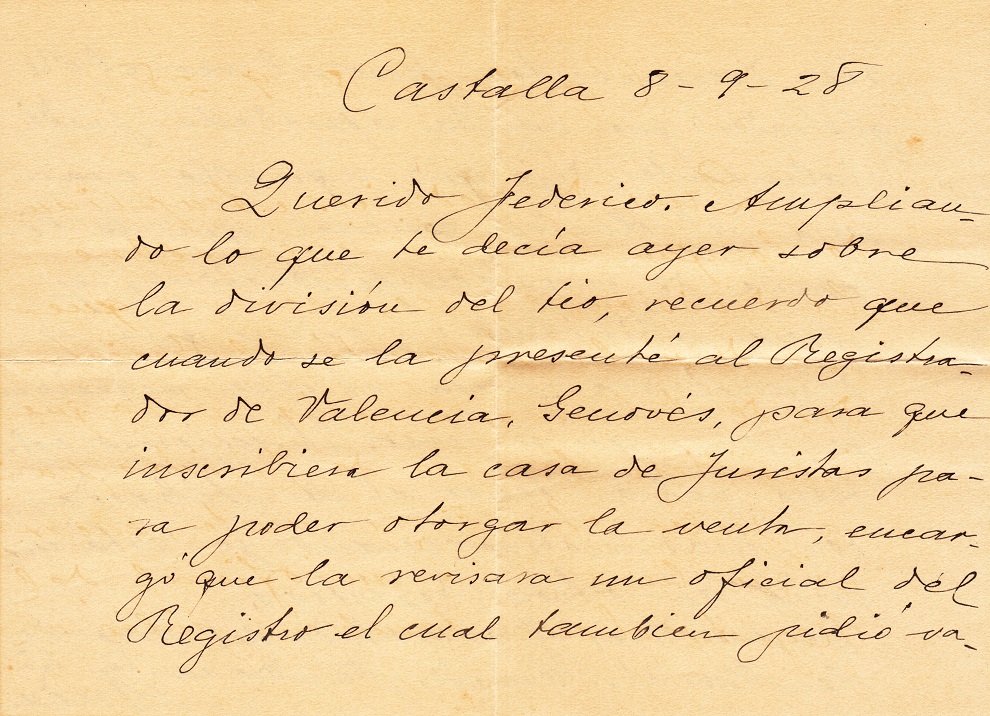 Castalla 8-9-28
Querido Federico. Amplian-
do lo que te decía ayer sobre
la división del tio, recuerdo que
cuando se la presenté al Registra-
dor de Valencia, Genovés, para que
inscribiera la casa de Juristas pa-
ra poder otorgar la venta, encar-
gó que la revisara un oficial del
Registro el cual tambien pidió va-